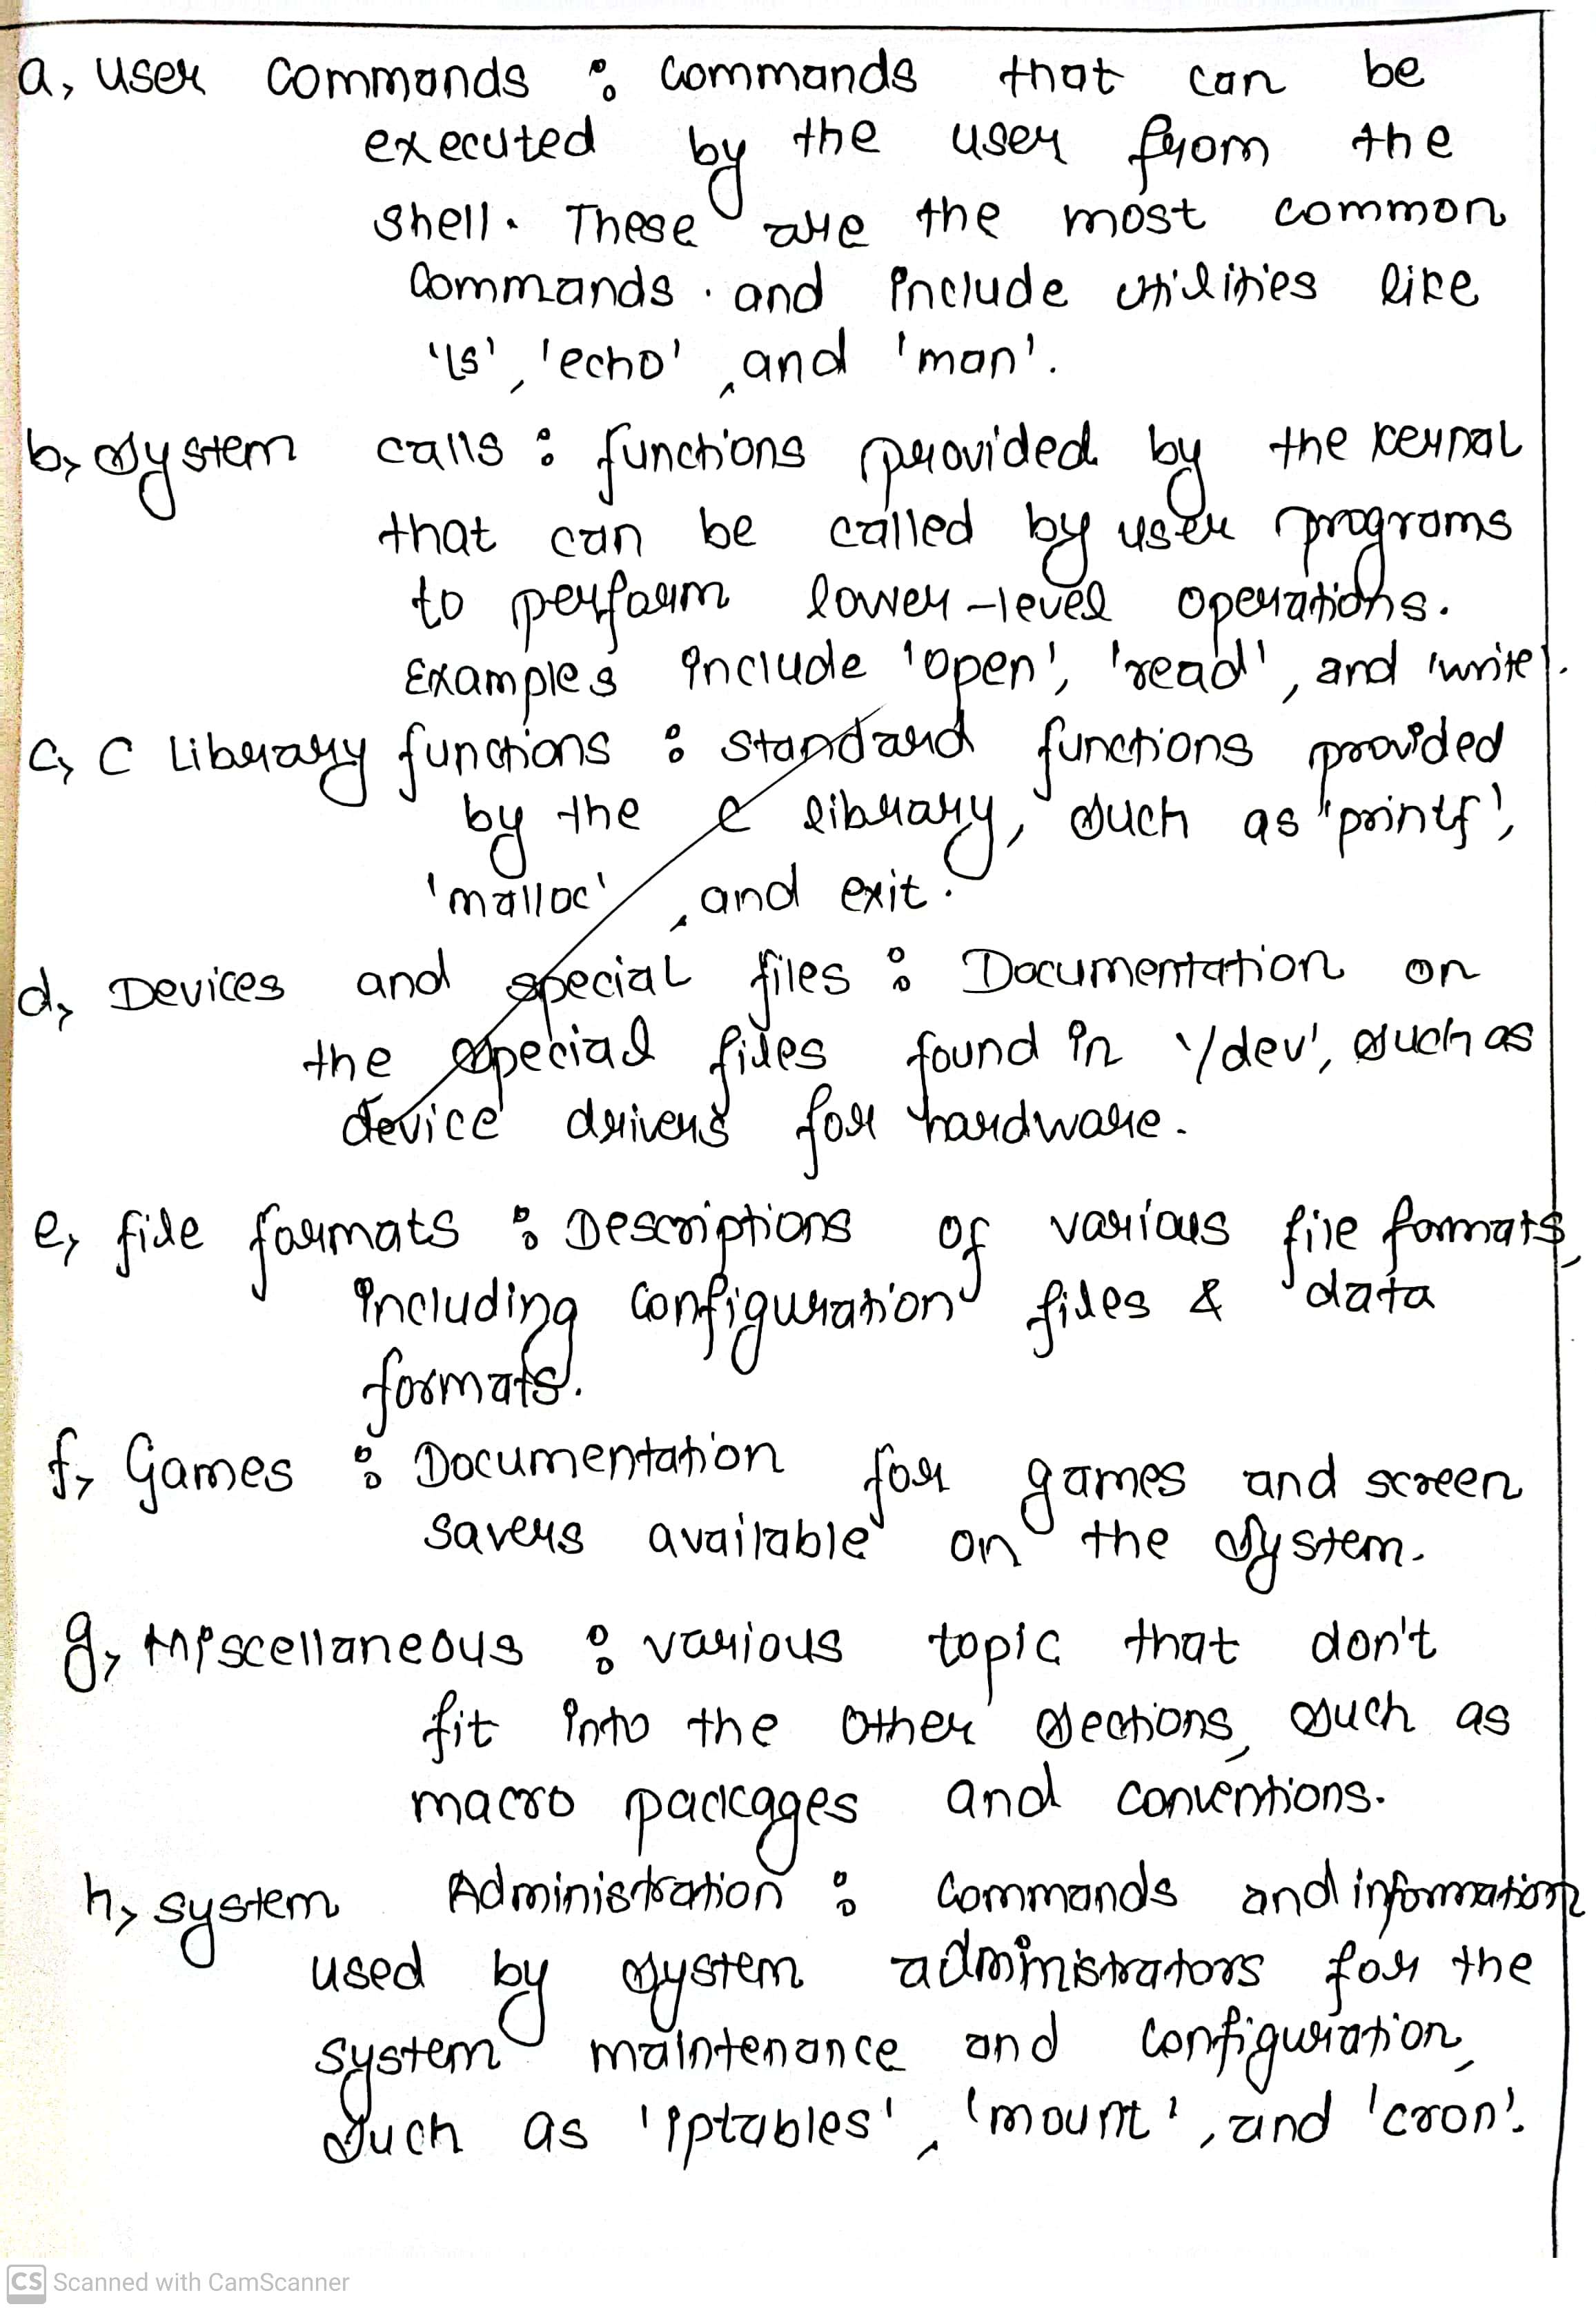 a, User Commands : Commands that can be
executed by the user from the
shell. These are the most common
Commands . and include utilities like
'ls', 'echo' , and 'man'.
b, System calls : functions provided by the kernal
that can be called by user programs
to perform lower-level operations.
Examples include 'open', 'read', and 'write'.
c, C Library functions : standard functions provided
by the C library, such as 'printf',
'malloc' , and exit.
d, Devices and special files : Documentation on
the special files found in '/dev', such as
device drivers for hardware.
e, file formats : Descriptions of various file formats,
including configuration files & data
formats.
f, Games : Documentation for games and screen
savers available on the system.
g, Miscellaneous : various topic that don't
fit into the other sections, such as
macro packages and conventions.
h, system Administration : Commands and information
used by system administrators for the
system maintenance and configuration,
such as 'iptables', 'mount', and 'cron'.
CS Scanned with CamScanner